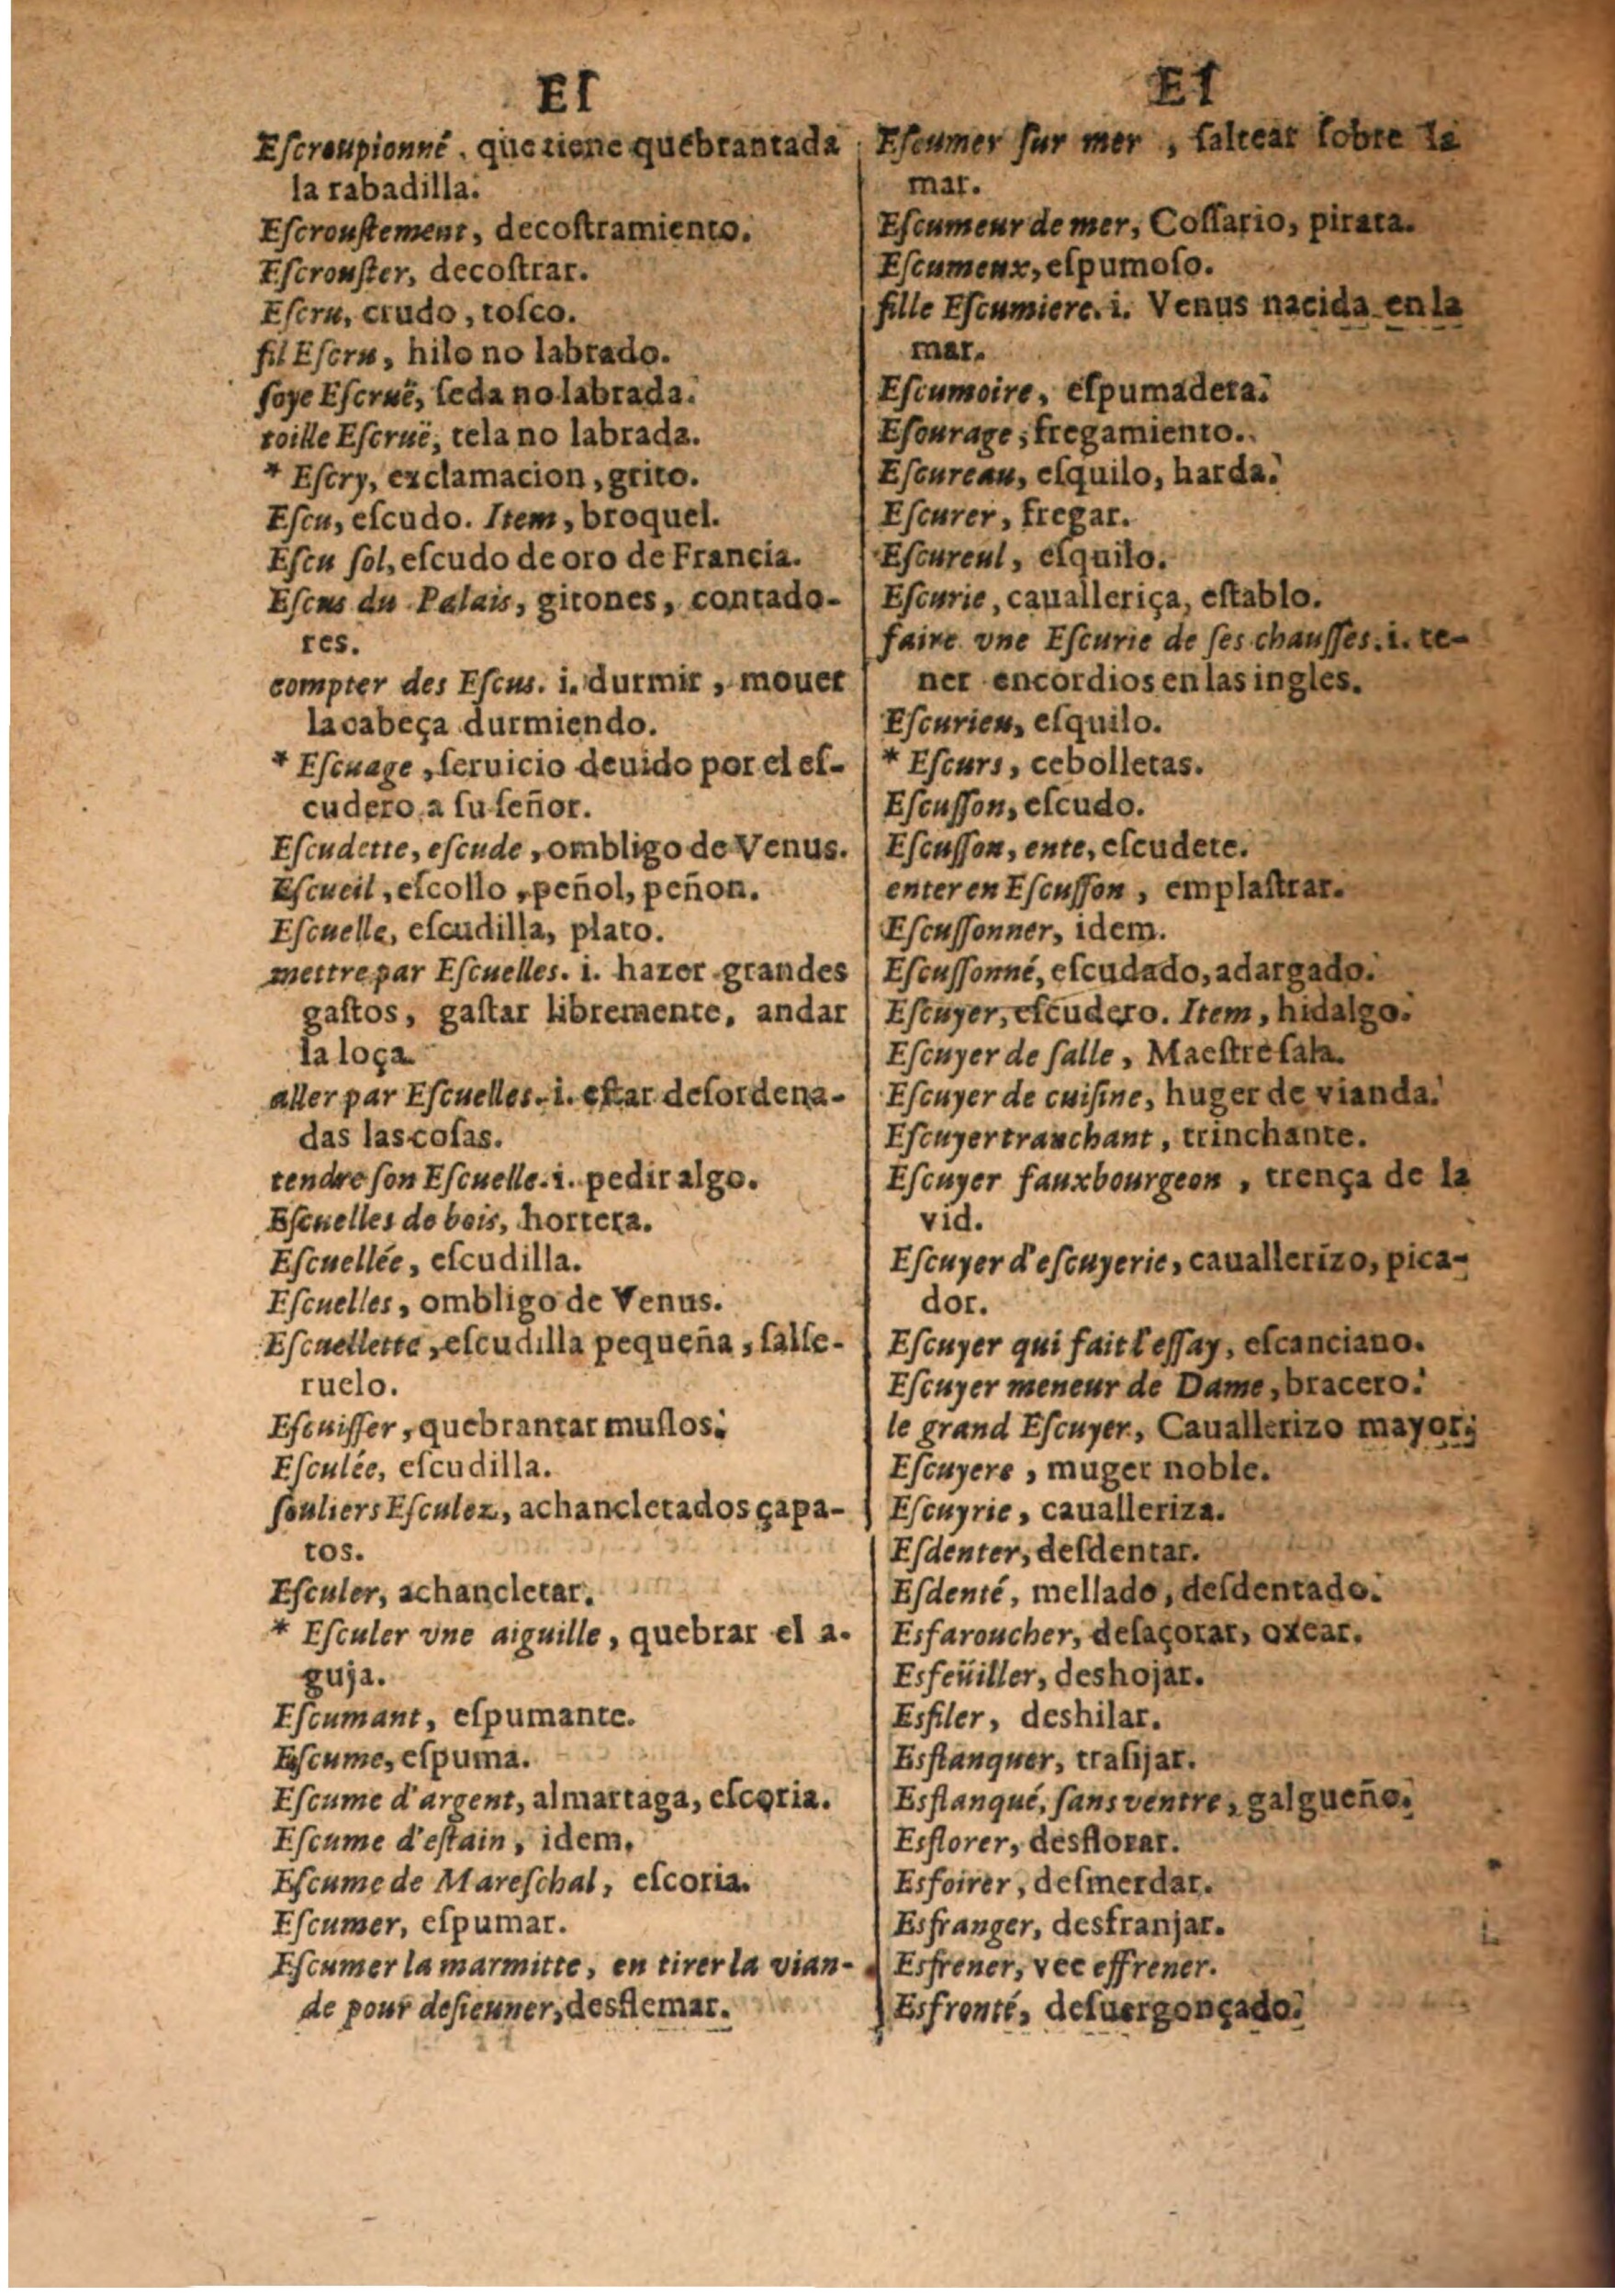 Eſ
Eſcroupionné, que tiene quebrantada
la rabadilla.
Eſcrouſtement, decoſtramiento.
Eſcrouſter, decoſtrar.
Eſcru, crudo, toſco.
fil Eſcru, hilo no labrado.
ſoye Eſcruë, ſeda no labrada.
toille Eſcruë, tela no labrada.
* Eſcry, exclamacion, grito.
Eſcu, eſcudo. Item, broquel.
Eſcu ſol, eſcudo de oro de Francia.
Eſcus du Palais, gitones, contado-
res.
compter des Eſcus. i. durmir, mouer
la cabeça durmiendo.
* Eſcuage, ſeruicio deuido por el eſ-
cudero a ſu ſeñor.
Eſcudette, eſcude, ombligo de Venus.
Eſcueil, eſcollo, peñol, peñon.
Eſcuelle, eſcudilla, plato.
mettre par Eſcuelles. i. hazer grandes
gaſtos, gaſtar libremente, andar
la loça.
aller par Eſcuelles. i. eſtar deſordena-
das las coſas.
tendre ſon Eſcuelle. i. pedir algo.
Eſcuelles de bois, hortera.
Eſcuellée, eſcudilla.
Eſcuelles, ombligo de Venus.
Eſcuellette, eſcudilla pequeña, ſalſe-
ruelo.
Eſcuiſſer, quebrantar muſlos.
Eſculée, eſcudilla.
ſouliers Eſculez, achancletados çapa-
tos.
Eſculer, achancletar.
* Eſculer vne aiguille, quebrar el a-
guja.
Eſcumant, eſpumante.
Eſcume, eſpuma.
Eſcume d'argent, almartaga, eſcoria.
Eſcume d'eſtain, idem.
Eſcume de Mareſchal, eſcoria.
Eſcumer, eſpumar.
Eſcumer la marmitte, en tirer la vian-
de pour deſieuner, desflemar.
Eſ
Eſcumer ſur mer, ſaltear ſobre la
mar.
Eſcumeur de mer, Coſſario, pirata.
Eſcumeux, eſpumoſo.
fille Eſcumiere. i. Venus nacida en la
mar.
Eſcumoire, eſpumadera.
Eſourage, fregamiento.
Eſcureau, eſquilo, harda.
Eſcurer, fregar.
Eſcureul, eſquilo.
Eſcurie, cauалleriça, eſtablo.
faire vne Eſcurie de ſes chauſſes. i. te-
ner encordios en las ingles.
Eſcurieu, eſquilo.
* Eſcurs, cebolletas.
Eſcuſſon, eſcudo.
Eſcuſſon, ente, eſcudete.
enter en Eſcuſſon, emplaſtrar.
Eſcuſſonner, idem.
Eſcuſſonné, eſcudado, adargado.
Eſcuyer, eſcudero. Item, hidalgo.
Eſcuyer de ſalle, Maeſtre ſala.
Eſcuyer de cuiſine, huger de vianda.
Eſcuyer tranchant, trinchante.
Eſcuyer fauxbourgeon, trença de la
vid.
Eſcuyer d'eſcuyerie, cauallerizo, pica-
dor.
Eſcuyer qui fait l'eſſay, eſcanciano.
Eſcuyer meneur de Dame, bracero.
le grand Eſcuyer, Cauallerizo mayor.
Eſcuyere, muger noble.
Eſcuyrie, caualleriza.
Eſdenter, deſdentar.
Eſdenté, mellado, deſdentado.
Esfaroucher, deſaçorar, oxear.
Esfeüiller, deshojar.
Esfiler, deshilar.
Esflanquer, traſijar.
Esflanqué, ſans ventre, galgueño.
Esflorer, desflorar.
Esfoirer, deſmerdar.
Esfranger, desfranjar.
Esfrener, vee effrener.
Esfronté, deſuergonçado.